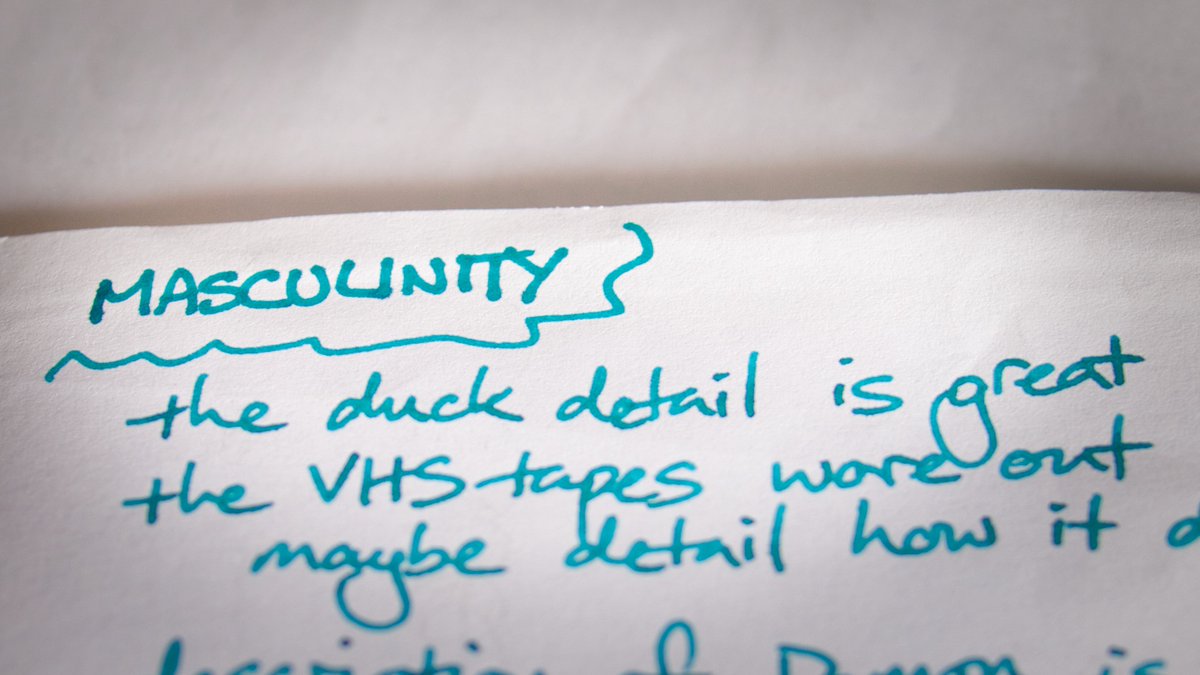 MASCULINITY
the duck detail is great
the VHS tapes wore out
maybe detail how it
description of is